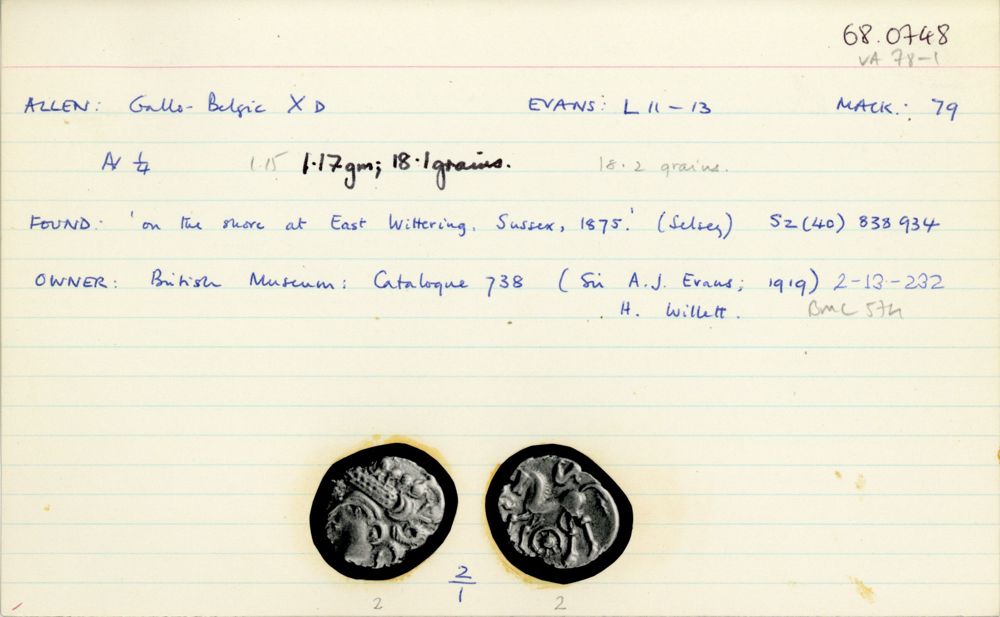 68.0748
VA 78-1
ALLEN: Gallo-Belgic X D EVANS: L 11-13 MACK.: 79
AV 1/4 1.15 1.17gm; 18.1grains. 18.2 grains.
FOUND: 'on the shore at East Wittering, Sussex, 1875.' (Selsey) SZ(40) 838934
OWNER: British Museum: Catalogue 738 (Sir A.J. Evans; 1919) 2-13-232
H. Willett. BMC 574
2/1
2 2